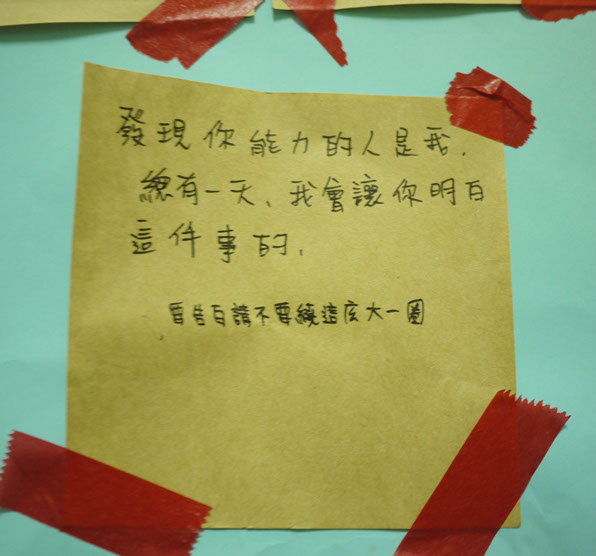 發現你能力的人是我.
總有一天、我會讓你明白
這件事的.
要告白請不要繞這麼大一圈